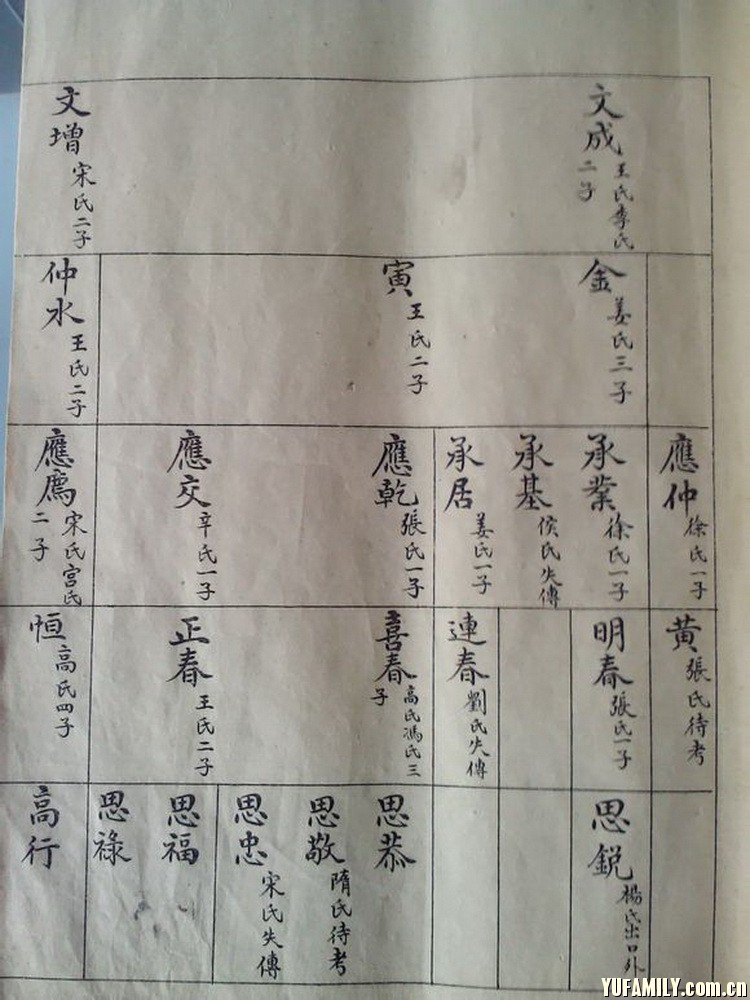 文成 王氏李氏二子
文增 宋氏二子
金 姜氏三子
寅 王氏二子
仲水 王氏二子
應仲 徐氏一子
承業 徐氏一子
承基 侯氏失傳
承居 姜氏一子
應乾 張氏一子
應交 辛氏一子
應鳳 宋氏宮氏二子
黃 張氏待考
明春 張氏一子
連春 劉氏失傳
喜春 高氏馮氏三子
正春 王氏二子
恒 高氏四子
思銳 楊氏出口外
思恭
思敬 隋氏待考
思忠 宋氏失傳
思福
思祿
高行
YUFAMILY.com.cn